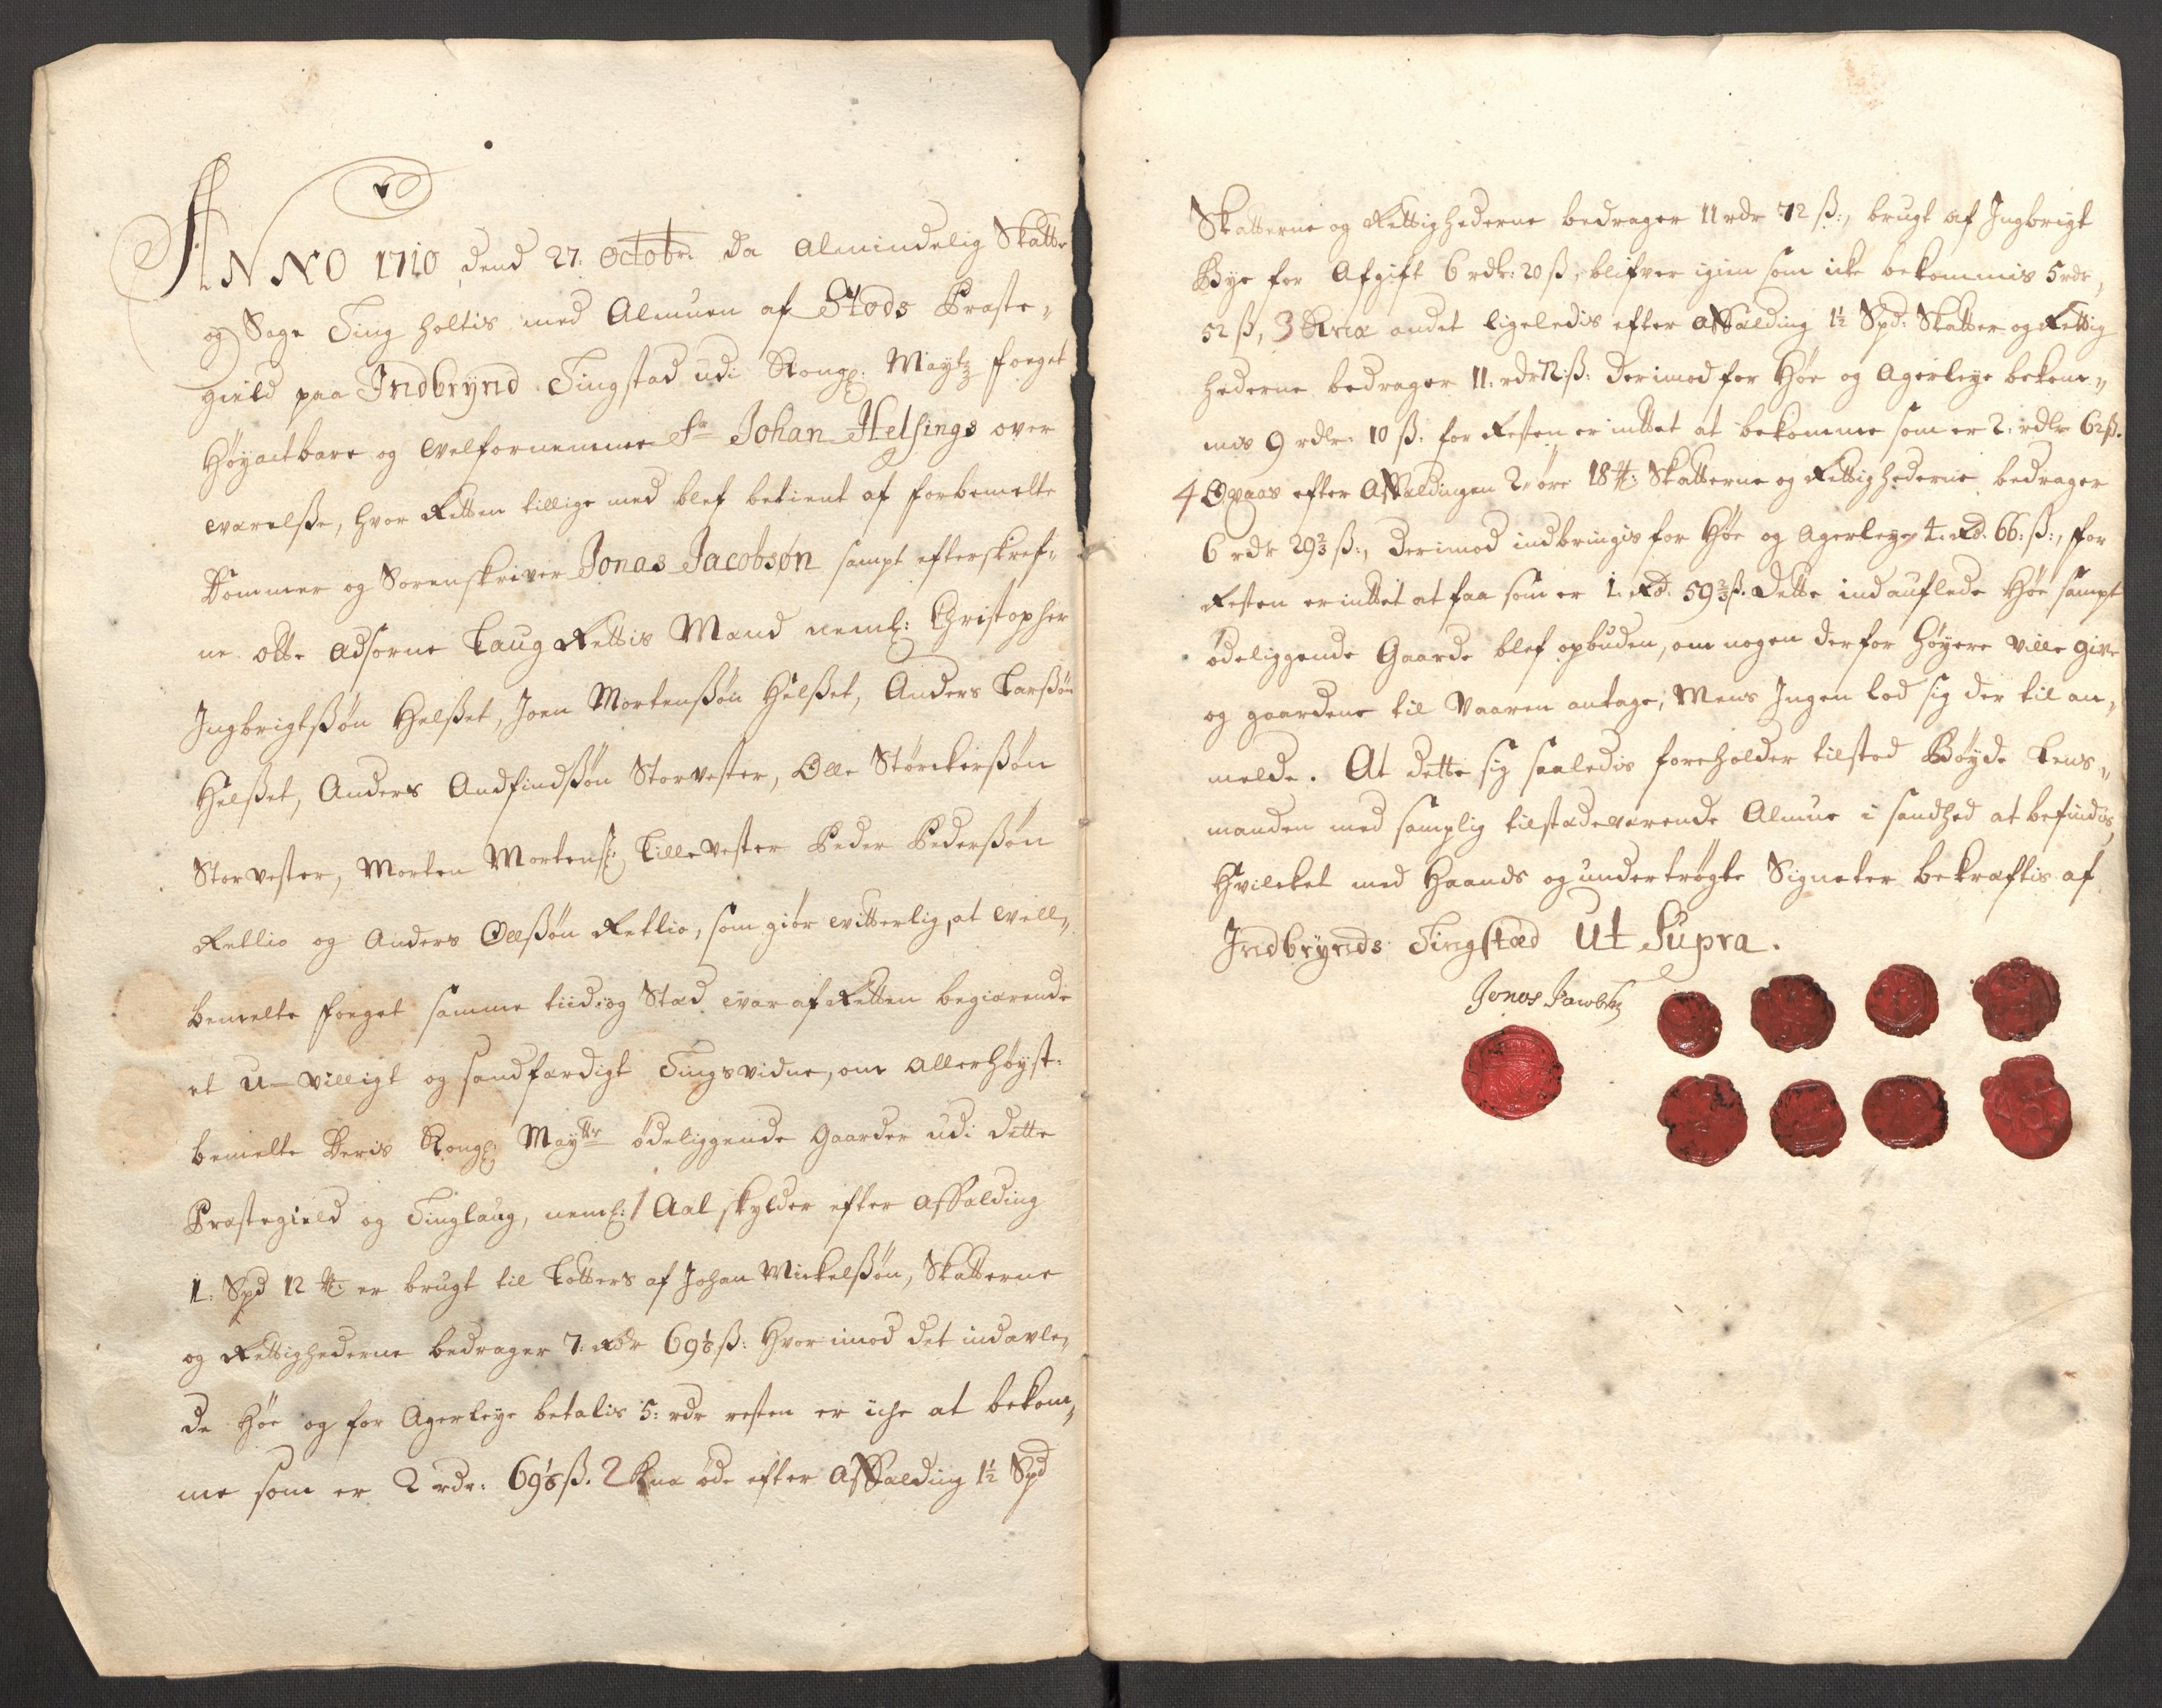 ANNO 1710 dend 27. Octobr. da Almindelig Skatte
og Sage Ting holtis med Almuen af Stods Præste-
gield paa Indbrynd Tingstad udi Kongl: Maytz foeget
Høyactbare og velfornemme Sr Johan Helsings over
værelsse, hvor Retten tillige med blef betient af forbemelte
Dommer og Sorenskriver Jonas Jacobsøn sampt efterskref-
ne otte adsorne Laug Rettis Mænd neml: Christopher
Ingbrigtssøn Helsset, Joen Mortenssøn Helsset, Anders Larssøn
Helsset, Anders Andfindssøn Storvester, Olle Størckerssøn
Storvester, Morten Mortens: Lillevester Peder Pederssøn
Rellio og Anders Olssøn Retlio, som giør vitterlig, at vell-
bemelte foeget samme tiid og Stæd var af Retten begiærende
et U-villigt og sandfærdigt Tings vidne, om allerhøyst-
bemelte Deris Kongl: Maytts ødeliggende Gaarder udi dette
Præstegield og Tinglaug, neml: 1 Aal skylder efter affælding
1: Spd 12 ℔: er brugt til Lotters af Johan Mickelssøn, Skatterne
og Rettighederne bedrager 7: Rdr 69⅓ ß: Hvor imod det indavle-
de Høe og for Agerleye betalis 5: rdr resten er iche at bekom-
me som er 2 rdr: 69⅓ ß. 2 Kna øde efter Affælding 1½ Spd
Skatterne og Rettighederne bedrager 11 rdr 72 ß:, brugt af Ingbrigt
Bye for Afgift 6 rdr: 20 ß, blifver igien som icke bekommis 5 rdr,
52 ß, 3 Kna andet ligeledis efter Affælding 1½ Spd: Skatter og Rettig
hederne bedrager 11: rdr 72: ß: derimod for Høe og Agerleye bekom-
mis 9 rdlr: 10 ß: for Resten er inttet at bekomme som er 2: rdlr 62 ß.
4 Qvaas efter Affældingen 2: øre 18 ℔: Skatterne og Rettighederne bedrager
6 rdr 29⅔ ß:, derimod indbringis for Høe og Agerleye 4: Rd. 66: ß:, for
Resten er inttet at faa som er 1. Rd. 59⅔ ß. Dette indauflede Høe sampt
ødeliggende Gaarde blef opbuden, om nogen derfor høyere ville give
og gaardene til Vaaren antage, Mens Ingen lod sig der til an-
melde. At dette sig saaledis foreholder tilstod Bøyde Lens-
manden med samplig tilstædeværende Almue i sandhed at befindis,
Hvilcket med Haands og undertrøgte Signeter bekræftis af
Indbrynds Tingstæd Ut Supra.
Jonas Jacobsen